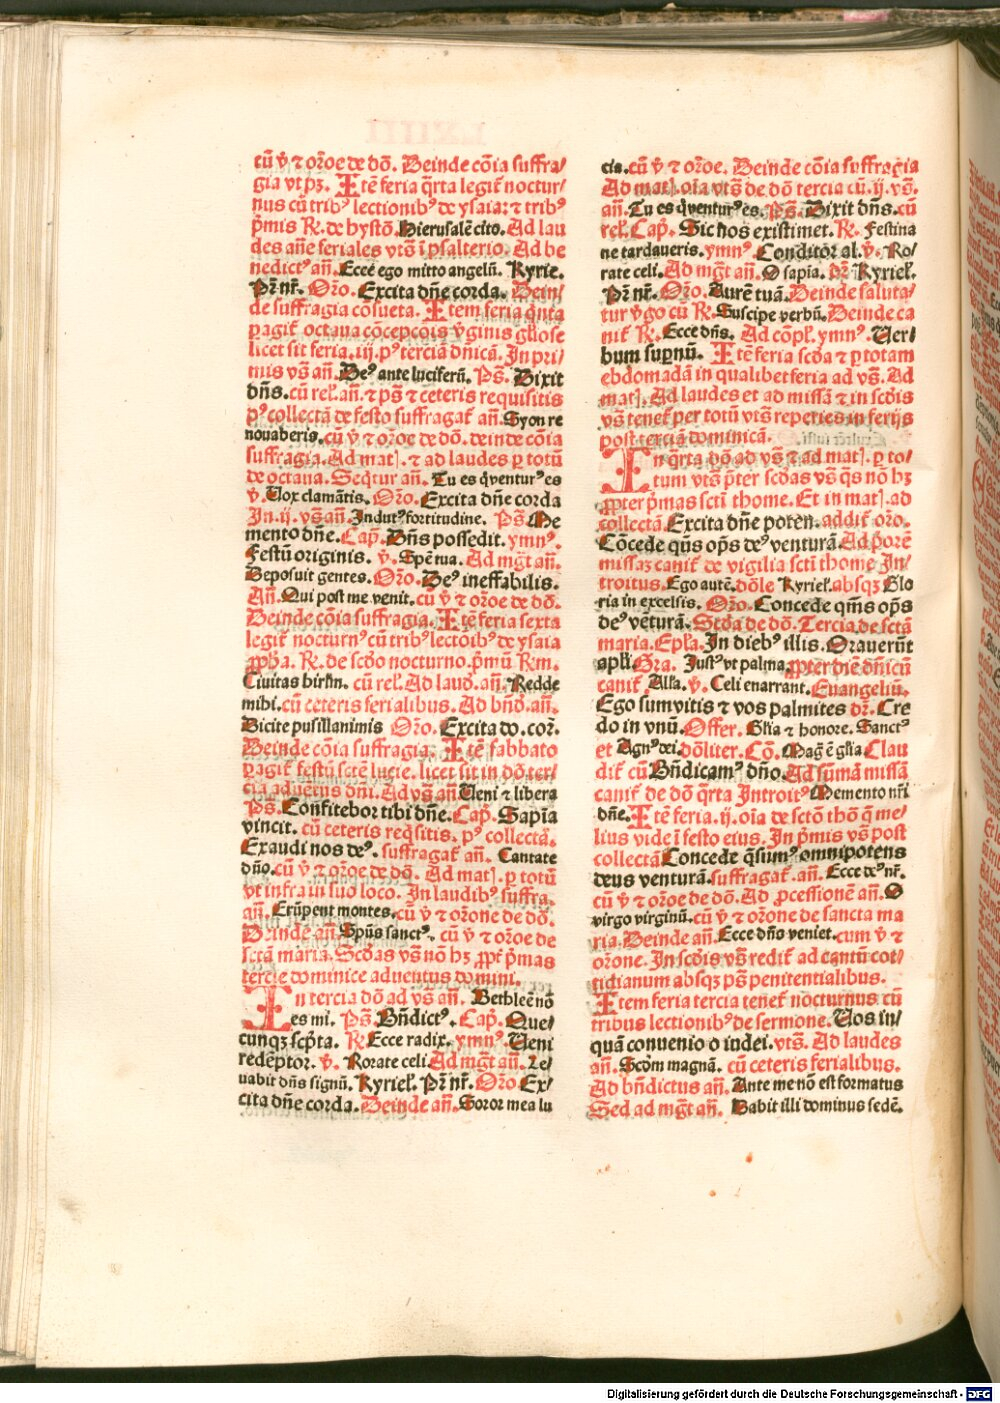 cū v̓ ⁊ or̄oe de dō. Deinde cōia suffra/
gia vt pꝫ. Itē feria q̄rta legit̄ noctur/
nus cū tribꝰ lectionibꝰ de ysaia: ⁊ tribꝰ
p̄mis R. de hystō. Hierusalē cito. Ad lau
des añe feriales vtō ī psalterio. Ad be
nedictꝰ añ. Ecce ego mitto angelū. Kyrie.
Pr̄ nr̄. Or̄o. Excita dn̄e corda. Dein/
de suffragia cōsueta. Item feria q̄nta
ꝑagit̄ octaua cōcepcōis v̓ginis gl̄iose
licet sit feria. iij. pꝰ terciā dn̄icā. In pri/
mis vs̄ añ. Deꝰ ante luciferū. Ps̄. Dixit
dn̄s. cū rel̄. añ. ⁊ ps̄ ⁊ ceteris requisitis
pꝰ collectā de festo suffragat̄ añ. Syon re
nouaberis. cū v̓ ⁊ or̄oe de dō. deinde cōia
suffragia. Ad mat̄. ⁊ ad laudes ꝑ totū
de octaua. Seq̄tur añ. Tu es q̄venturꝰ es
v̓. Vox clamātis. Or̄o. Excita dn̄e corda
In. ij. vs̄ añ. Indutꝰ fortitudine. Ps̄. Me
mento dn̄e. Cap̄. Dn̄s possedit. ymnꝰ.
Festū originis. v̓. Spē tua. Ad mḡt añ.
Deposuit gentes. Or̄o. Deꝰ ineffabilis.
Añ. Qui post me venit. cū v̓ ⁊ or̄oe de dō.
Deinde cōia suffragia. Itē feria sexta
legit̄ nocturnꝰ cū tribꝰ lectōibꝰ de ysaia
ꝓph̄a. R. de scd̄o nocturno. p̄mū Rm.
Ciuitas hirl̄m. cū rel̄. Ad laud̄. añ. Redde
mihi. cū ceteris ferialibus. Ad bn̄d̄. añ.
Dicite pusillanimis Or̄o. Excita do. cor̄.
Deinde cōia suffragia. Itē sabbato
ꝑagit̄ festū sctē lucie. licet sit in dō ter/
cia aduentus dn̄i. Ad vs̄ añ Veni ⁊ libera
Ps̄. Confitebor tibi dn̄e. Cap̄. Sapīa
vincit. cū ceteris req̄sitis. pꝰ collectā.
Exaudi nos deꝰ. suffragat̄ añ. Cantate
dn̄o. cū v̓ ⁊ or̄oe de dō. Ad mat̄. ꝑ totū
vt infra in suo loco. In laudibꝰ suffra.
añ. Erūpent montes. cū v̓ ⁊ or̄one de dō.
Deinde añ. Spūs sanctꝰ. cū v̓ ⁊ or̄oe de
sctā maria. Scd̄as vs̄ nō hꝫ ꝓpt̄ p̄mas
tercie dominice aduentus domini.
In tercia dō ad vs̄ añ. Bethleē nō
es mi. Ps̄. Bn̄dictꝰ. Cap̄. Que/
cunqꝫ scp̄ta. R. Ecce radix. ymnꝰ. Veni
redēptor. v̓. Rorate celi. Ad mḡt añ. Le/
uabit dn̄s signū. Kyriel̄. Pr̄ nr̄. Or̄o Ex/
cita dn̄e corda. Deinde añ. Soror mea lu
cia. cū v̓ ⁊ or̄oe. Deinde cōia suffragia
Ad mat̄. oīa vts̄ de dō tercia cū. ij. vs̄.
añ. Tu es q̄venturꝰ es. Ps̄. Dixit dn̄s. cū
rel̄. Cap̄. Sic nos existimet. R. Festina
ne tardaueris. ymnꝰ Conditor al. v̓. Ro/
rate celi. Ad mḡt añ. O sapīa. Kyriel̄.
Pr̄ nr̄. Or̄o. Aurē tuā. Deinde saluta/
tur v̓go cū R. Suscipe verbū. Deinde ca
nit̄ R. Ecce dn̄s. Ad cōpl̄. ymnꝰ. Ver/
bum suꝑnū. Itē feria scd̄a ⁊ ꝑ totam
ebdomadā in qualibet feria ad vs̄. Ad
mat̄. Ad laudes et ad missā ⁊ in scd̄is
vs̄ tenet̄ per totū vts̄ reperies in ferijs
post terciā dominicā.
In q̄rta dō ad vs̄ ⁊ ad mat̄. ꝑ to/
tum vts̄ p̄ter scd̄as vs̄ qs̄ nō hꝫ
ꝓpter p̄mas sctī thome. Et in mat̄. ad
collectā. Excita dn̄e poten. addit̄ or̄o.
Cōcede qn̄s op̄s deꝰ venturā. Ad p̄orē
missaꝫ canit̄ de vigilia sctī thome In/
troitus. Ego autē. dōle Kyriel̄. absqꝫ Glo
ria in excelsis. Or̄o. Concede qm̄s op̄s
deꝰ veturā. Scd̄a de dō. Tercia. de sctā
maria. Epl̄a. In diebꝰ illis. Orauerūt
apl̄i Gra. Justꝰ vt palma. ꝓpter diē dn̄icū
canit̄ All̄a. v̓. Celi enarrant. Euangeliū.
Ego sum vitis ⁊ vos palmites dr̄. Cre
do in vnū. Offer. Gl̄ia ⁊ honore. Sanctꝰ
et Agnꝰ dei. dōliter. Cō. Mag̓ ē gl̄ia Clau
dit̄ cū Bn̄dicamꝰ dn̄o. Ad sūmā missā
canit̄ de dō q̄rta Introitꝰ Memento nr̄i
dn̄e. Itē feria. ij. oīa de sctō thōa me/
lius vide ī festo eius. In p̄mis vs̄ post
collectā Concede q̄sumꝰ omnipotens
deus venturā. suffragat̄. añ. Ecce deꝰ nr̄.
cū v̓ ⁊ or̄oe de dō. Ad ꝓcessionē añ. O
virgo virginū. cū v̓ ⁊ or̄one de sancta ma
ria. Deinde añ. Ecce dn̄s veniet. cum v̓ ⁊
or̄one. In scd̄is vs̄ redit̄ ad cantū cot/
tidianum absqꝫ ps̄ penitentialibus.
Item feria tercia tenet̄ nocturnus cū
tribus lectionibꝰ de sermone. Vos in/
quā conuenio o iudei. vts̄. Ad laudes
añ. Scd̄m magnā. cū ceteris ferialibus.
Ad bn̄dictus añ. Ante me nō est formatus
Sed ad mḡt añ. Dabit illi dominus sedē.
Digitalisierung gefördert durch die Deutsche Forschungsgemeinschaft - DFG